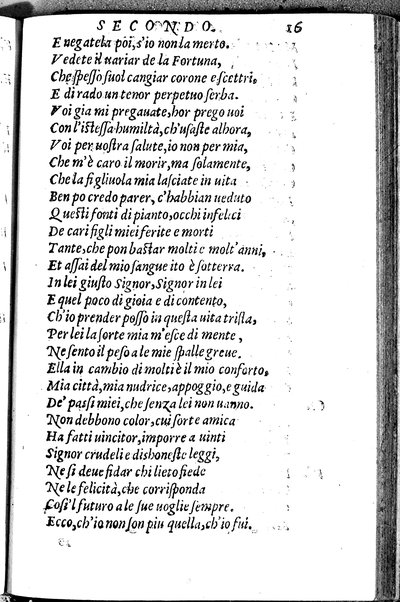 SECONDO. 16
E negatela poi, s'io non la merto.
Vedete il uariar de la Fortuna,
Che spesso suol cangiar corone e scettri,
E di rado un tenor perpetuo serba.
Voi gia mi pregauate, hor prego uoi
Con l'istessa humiltà, ch'usaste alhora,
Voi per uostra salute, io non per mia,
Che m'è caro il morir, ma solamente,
Che la figliuola mia lasciate in uita
Ben po credo parer, c'habbian ueduto
Questi fonti di pianto, occhi infelici
De cari figli miei ferite e morti
Tante, che pon bastar molti e molt'anni,
Et assai del mio sangue ito è sotterra.
In lei giusto Signor, Signor in lei
E quel poco di gioia e di contento,
Ch'io prender posso in questa uita trista,
Per lei la sorte mia m'esce di mente,
Ne sento il peso a le mie spalle greue.
Ella in cambio di molti è il mio conforto,
Mia città, mia nudrice, appoggio, e guida
De' passi miei, che senza lei non uanno.
Non debbono color, cui sorte amica
Ha fatti uincitor, imporre a uinti
Signor crudeli e dishoneste leggi,
Ne si deue fidar chi lieto siede
Ne le felicità, che corrisponda
Cosi'l futuro a le sue uoglie sempre.
Ecco, ch'io non son piu quella, ch'io fui.